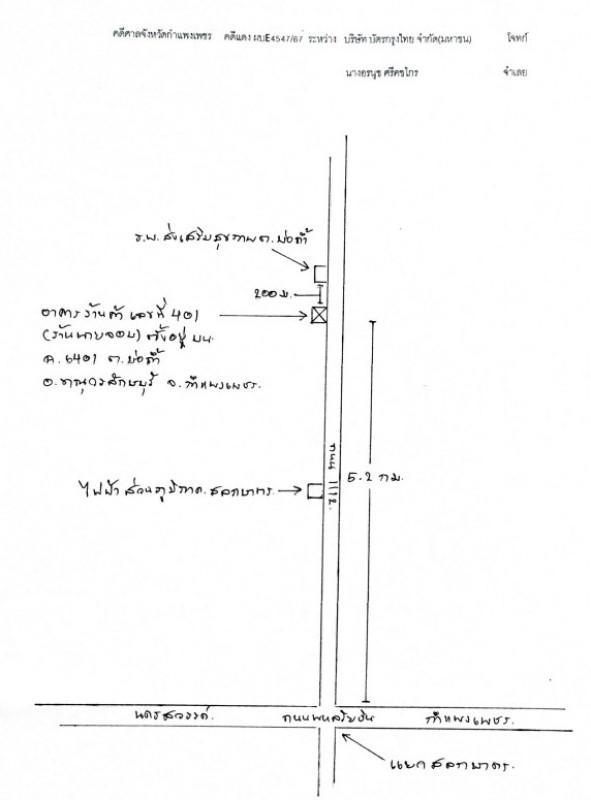 คดีศาลจังหวัดกำแพงเพชร คดีแดง ผบE4547/67 ระหว่าง บริษัท บัตรกรุงไทย จำกัด(มหาชน) โจทก์
นางอรนุช ศรีคชไกร จำเลย
ร.พ. ส่งเสริมสุขภาพ ต. บ่อถ้ำ
200 ม.
อาคารร้านค้า เลขที่ 401
(ร้านนายจอม) ตั้งอยู่ บน
ค. 6401 ต. บ่อถ้ำ
อ. ขาณุวรลักษบุรี จ. กำแพงเพชร.
ถนน 1112.
5.2 กม.
ไฟฟ้าส่วนภูมิภาค. สลกบาตร.
นครสวรรค์. ถนนพหลโยธิน กำแพงเพชร.
แยกสลกบาตร.